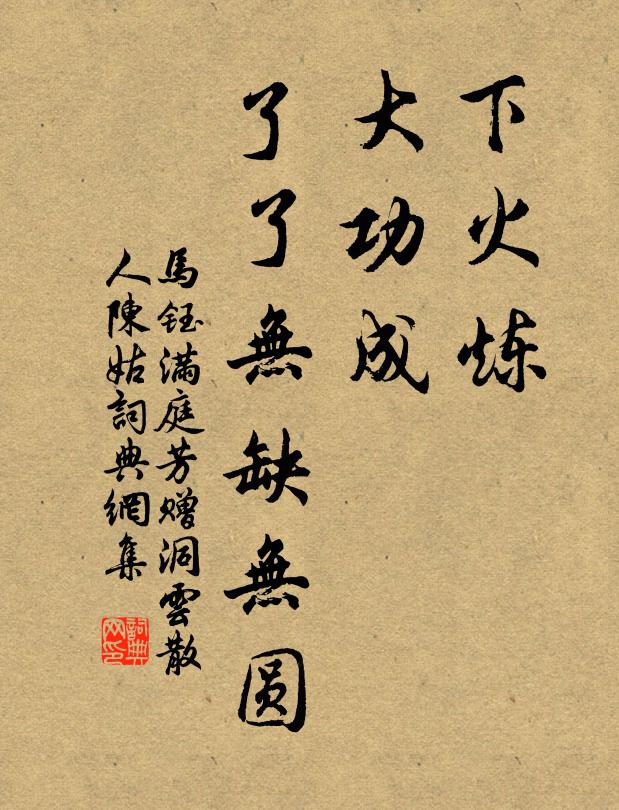 下火炼
大功成
了了無缺無圆
馬鈺满庭芳赠洞雲散
人陳姑詞典網集
詞典
网印